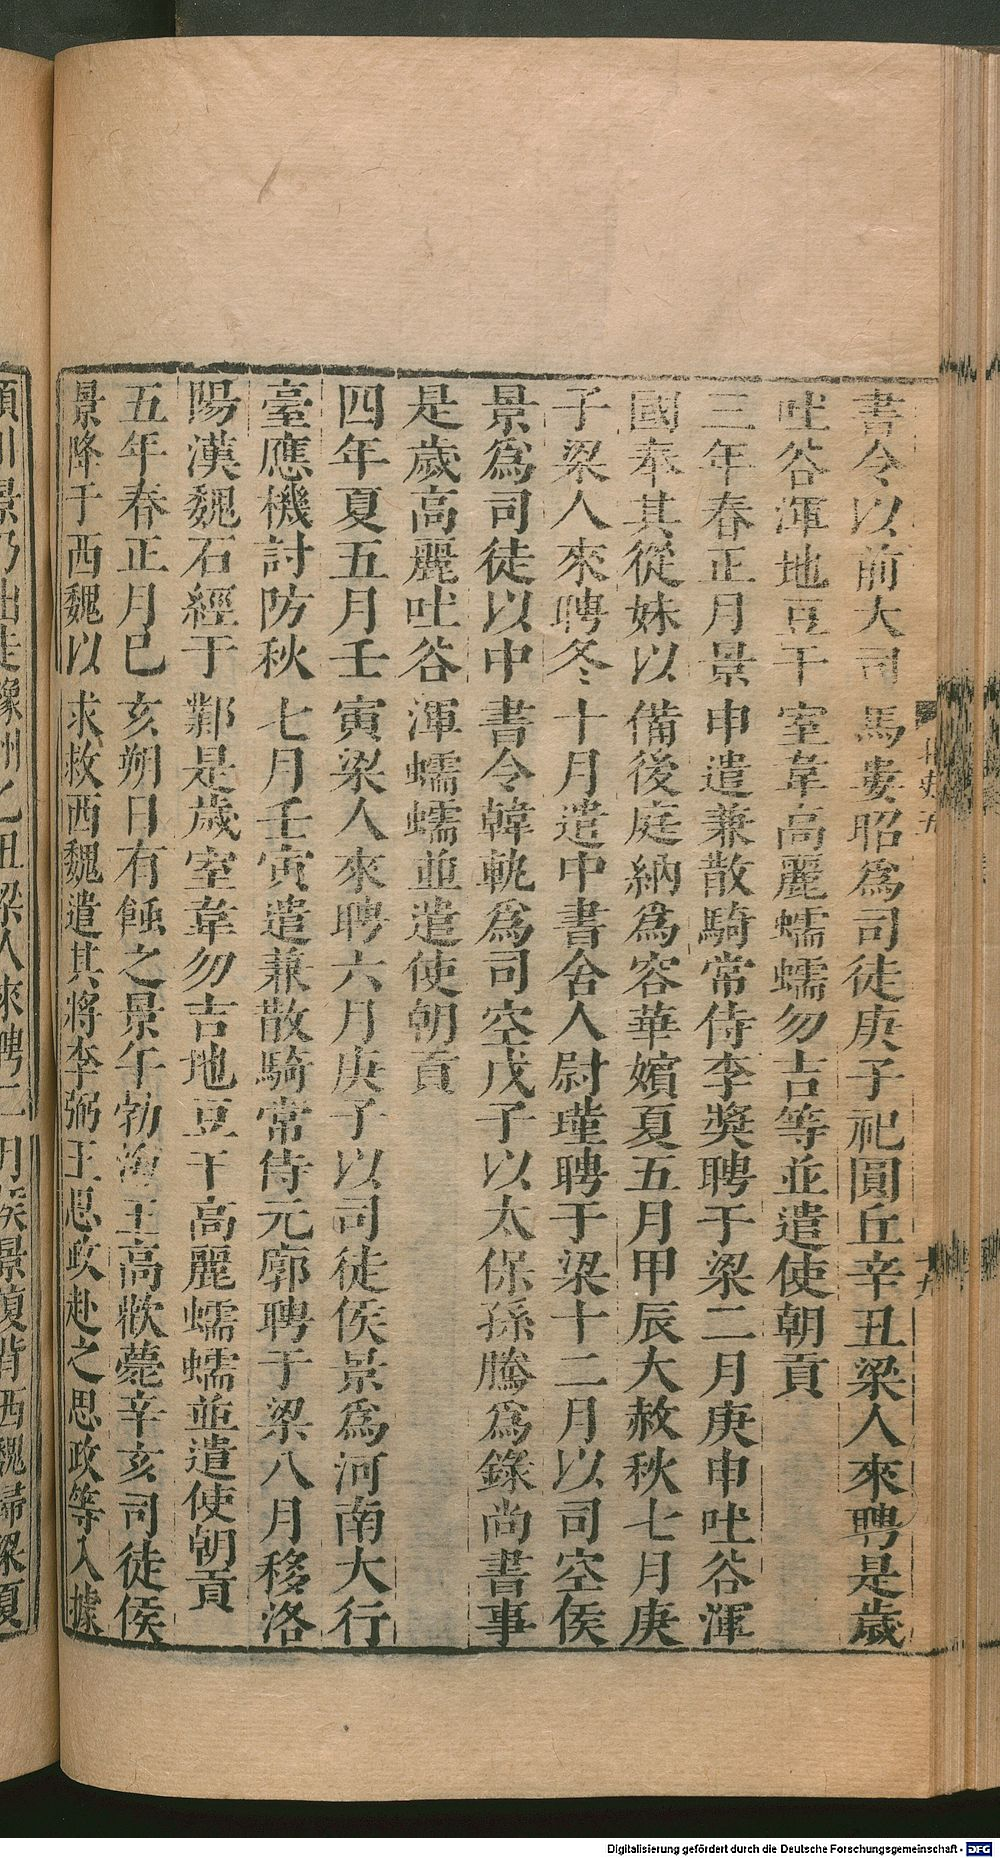 書令以前大司馬婁昭爲司徒庚子祀圓丘辛丑梁人來聘是歲
吐谷渾地豆干室韋高麗蠕蠕勿吉等並遣使朝貢
三年春正月景申遣兼散騎常侍李奬聘于梁二月庚申吐谷渾
國奉其從妹以備後庭納爲容華嬪夏五月甲辰大赦秋七月庚
子梁人來聘冬十月遣中書舍人尉瑾聘于梁十二月以司空侯
景爲司徒以中書令韓軌爲司空戊子以太保孫騰爲錄尚書事
是歲高麗吐谷渾蠕蠕並遣使朝貢
四年夏五月壬寅梁人來聘六月庚子以司徒侯景爲河南大行
臺應機討防秋七月壬寅遣兼散騎常侍元廓聘于梁八月移洛
陽漢魏石經于鄴是歲室韋勿吉地豆干高麗蠕蠕並遣使朝貢
五年春正月己亥朔日有蝕之景午勃海王高歡薨辛亥司徒侯
景降于西魏以求救西魏遣其將李弼王思政赴之思政等入據
景乃出走豫州乙丑梁人來聘二月侯景復背西魏歸梁夏
Digitalisierung gefördert durch die Deutsche Forschungsgemeinschaft - DFG